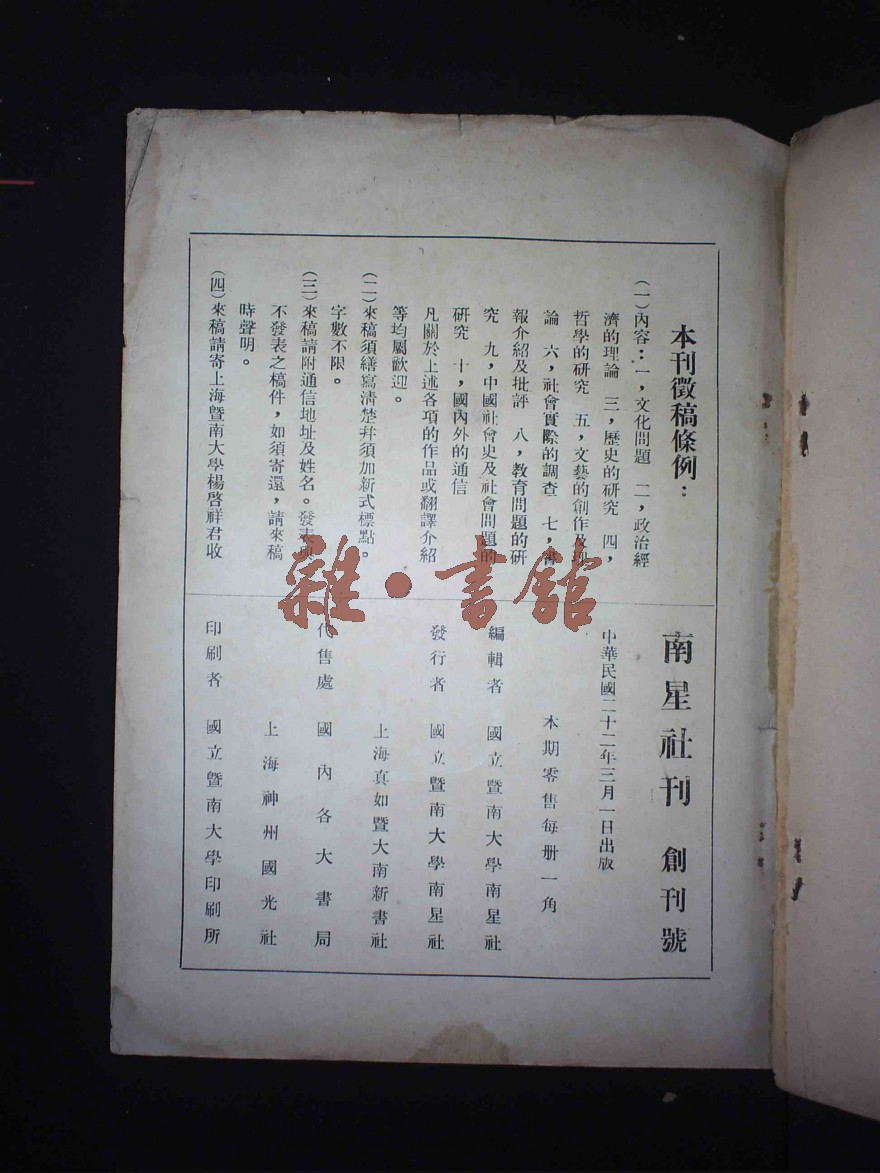 本刊徵稿條例：
（一）內容：一，文化問題　二，政治經
濟的理論　三，歷史的研究　四，
哲學的研究　五，文藝的創作及理
論　六，社會實際的調查　七，書
報介紹及批評　八，教育問題的研
究　九，中國社會史及社會問題的
研究　十，國內外的通信
凡關於上述各項的作品或翻譯介紹
等均屬歡迎。
（二）來稿須繕寫清楚幷須加新式標點。
字數不限。
（三）來稿請附通信地址及姓名。發表與
不發表之稿件，如須寄還，請來稿
時聲明。
（四）來稿請寄上海暨南大學楊啓祥君收
南星社刊　創刊號
中華民國二十二年三月一日出版
本期零售每册一角
編輯者　國立暨南大學南星社
發行者　國立暨南大學南星社
上海真如暨大南新書社
代售處　國內各大書局
上海神州國光社
印刷者　國立暨南大學印刷所
雜·書館